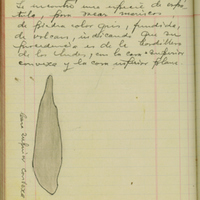 Se encontró una especie de espá-
tula, para sacar mariscos,
de piedra color gris, fundido,
de volcan, indicando que su
procedencia es de la Cordillera
de los Andes, con la cara superior
convexa y la cara inferior plana
Cara superior convexa